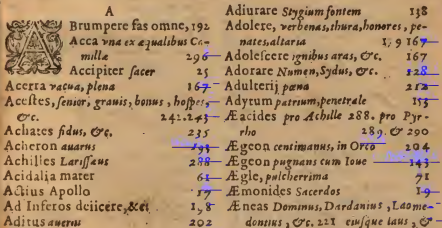 A
ABrumpere fas omne, 192
Acca vna ex æqualibus Ca-
millæ 296
Accipiter sacer 25
Acerra vacua, plena 167
Acestes, senior, grauis, bonus, hospes,
&c. 242.243
Achates fidus, &c. 235
Acheron auarus 193
Achilles Larissæus 288
Acidalia mater 61
Actius Apollo 17
Ad Inferos deiicere, &c. 198
Aditus auerni 202
Adiurare Stygium fontem 138
Adolere, verbenas, thura, honores, pe-
nates, altaria 1, 9 167
Adolescere ignibus aras, &c. 167
Adorare Numen, Sydus, &c. 128
Adulterij pœna 212
Adytum patrium, penetrale 153
Æacides pro Achille 288. pro Pyr-
rho 289. & 290
Ægeon centimanus, in Orco 204
Ægeon pugnans cum Ioue 143
Ægle, pulcherrima 71
Æmonides Sacerdos 19
Æneas Dominus, Dardanius, Laome-
dontius, &c. 221 eiusque laus, &